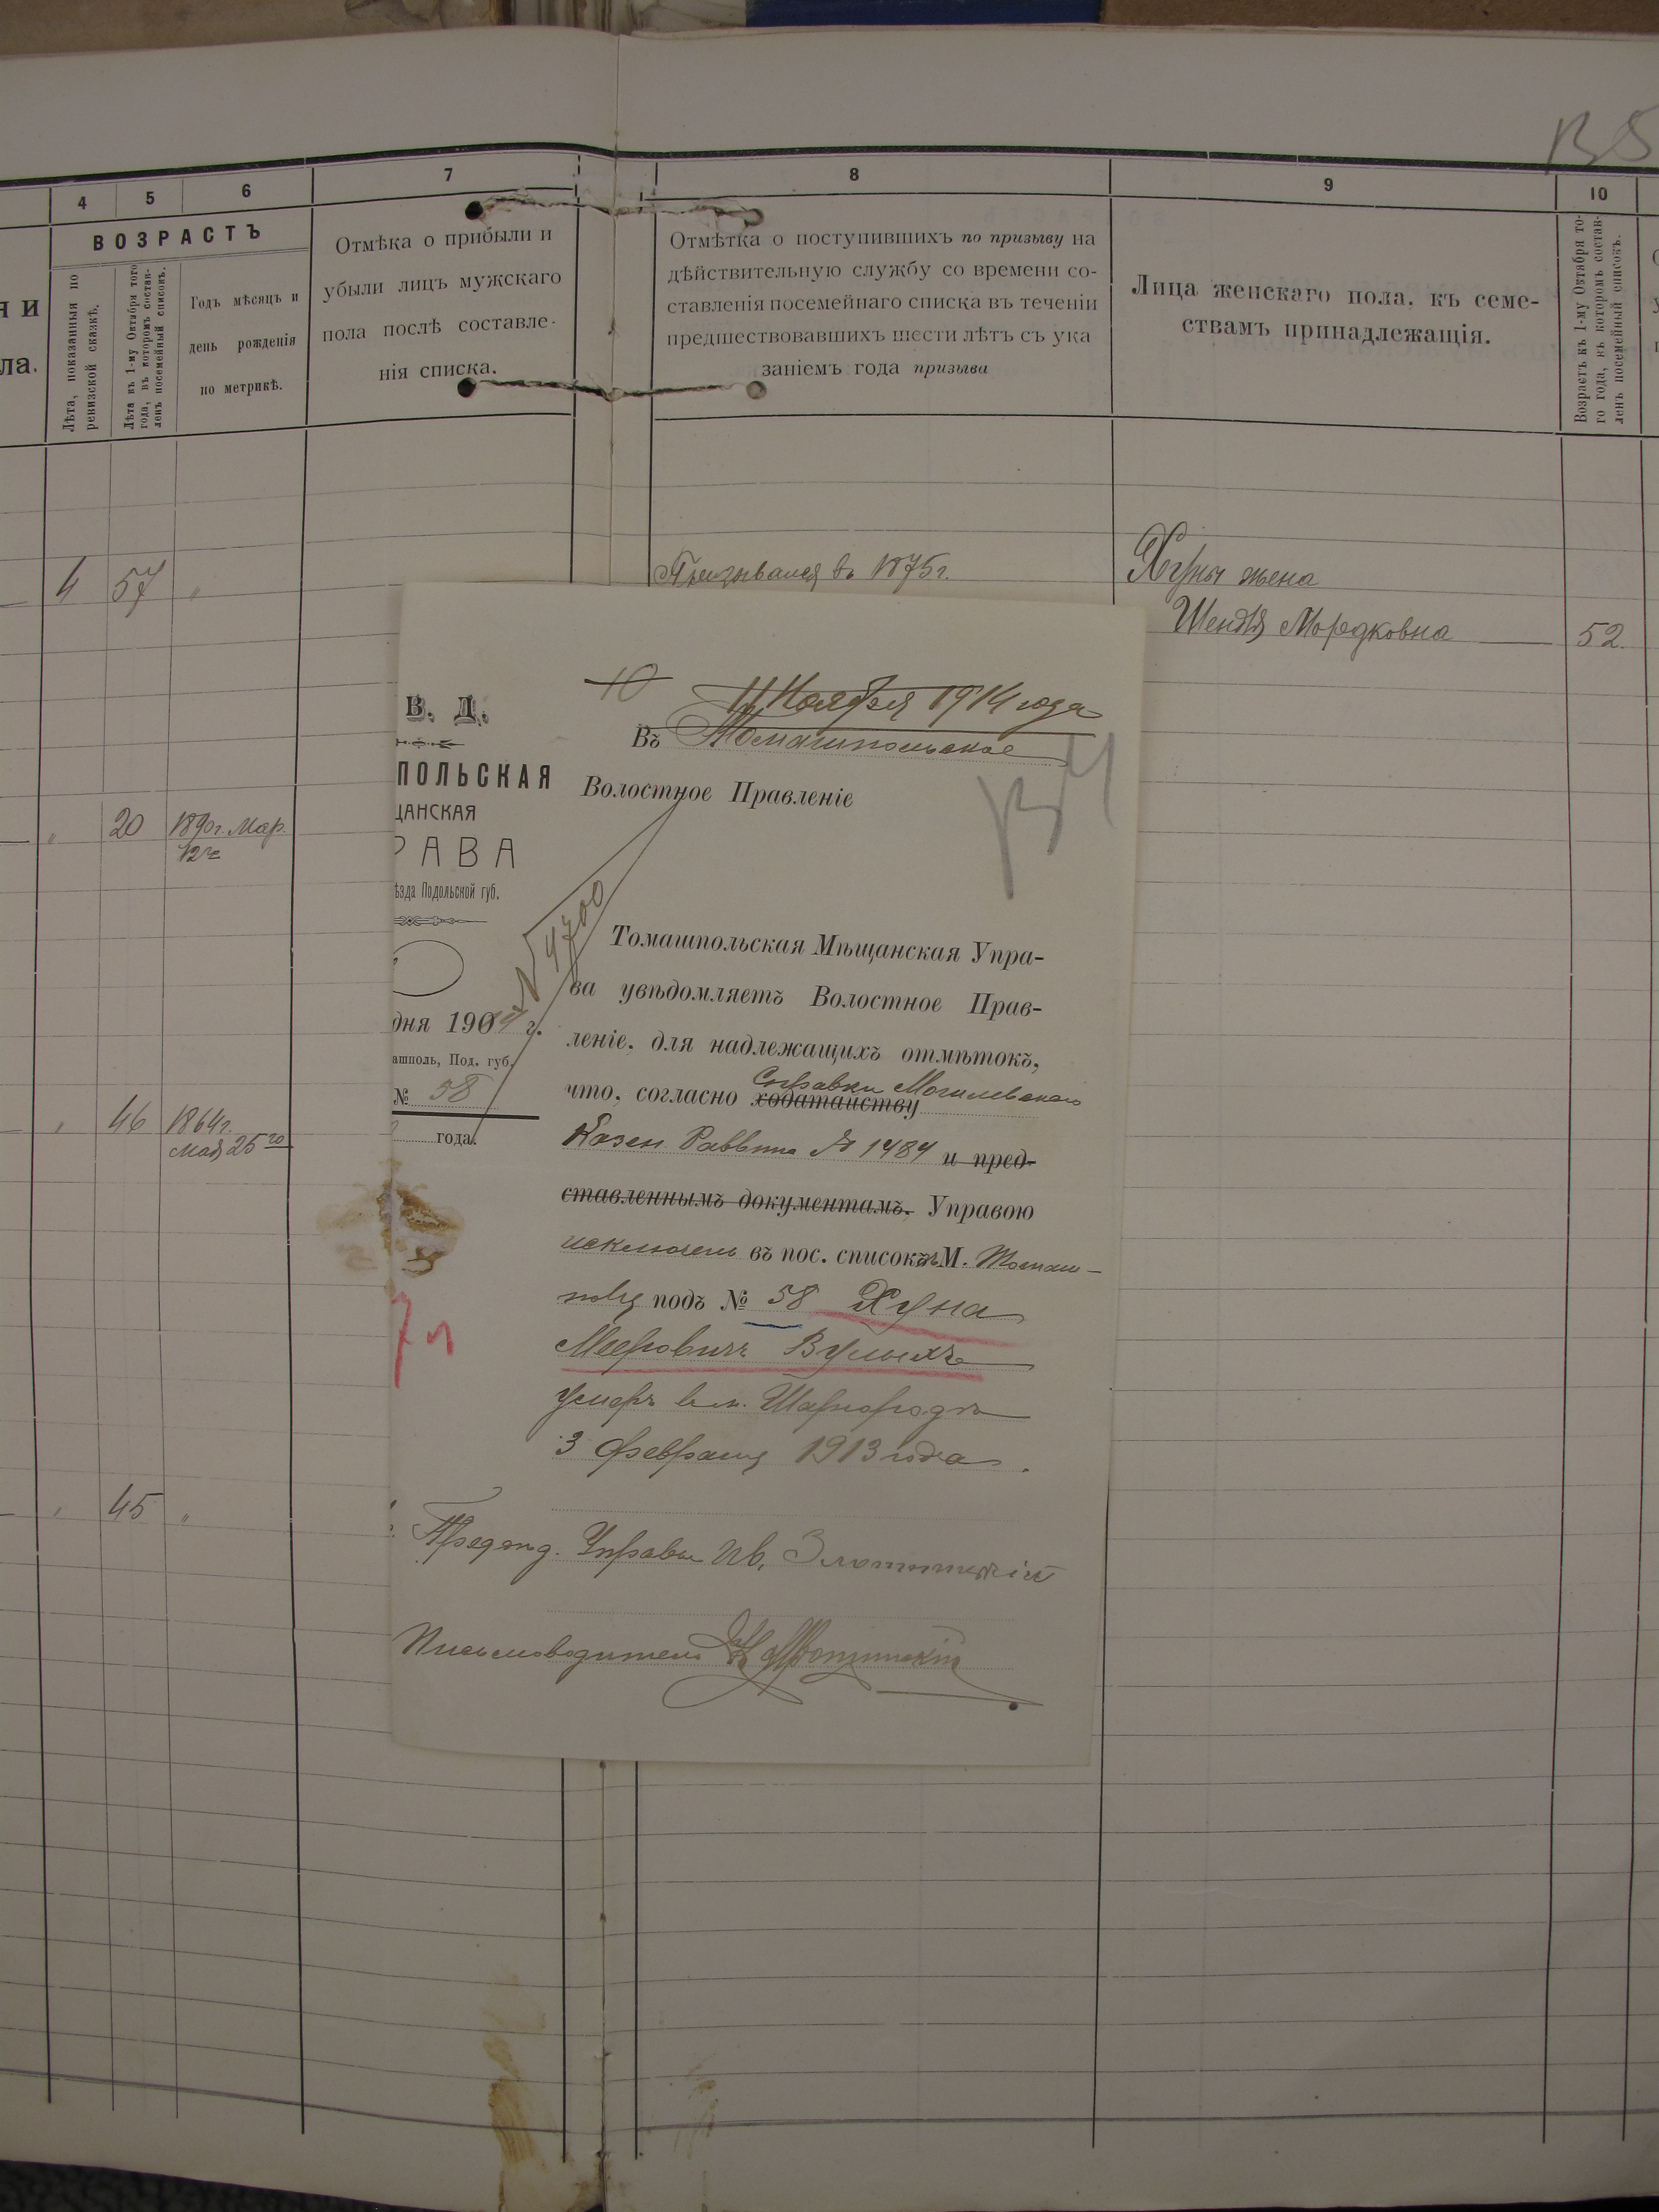 В5
4
5
6
7
8
9
10
ВОЗРАСТЪ
и и
ла.
Лѣта, показанныя по
ревизской сказкѣ.
Лѣта къ 1-му Октября того
года, въ которомъ состав-
ленъ посемейный списокъ.
Годъ мѣсяцъ и
день рожденія
по метрикѣ.
Отмѣка о прибыли и
убыли лицъ мужскаго
пола послѣ составле-
нія списка.
Отмѣтка о поступившихъ по призыву на
дѣйствительную службу со времени со-
ставленія посемейнаго списка въ теченіи
предшествовавшихъ шести лѣтъ съ ука
заніемъ года призыва
Лица женскаго пола. къ семе-
ствамъ принадлежащія.
Возрастъ къ 1-му Октября то-
го года, въ которомъ состав-
ленъ посемейный списокъ.
4 57 "
Призывался въ 1875 г.
Хуны жена
Шендля Мордковна 52.
" 20 1890 г. Мар.
12го
" 46 1864 г.
Мая 25 го
" 45 "
10
11 Ноября 1914 года
В. Д.
Въ Томашпольское
ПОЛЬСКАЯ
Волостное Правленіе
ЩАНСКАЯ
РАВА
ѣзда Подольской губ.
№ 4700
Томашпольская Мѣщанская Упра-
ва увѣдомляетъ Волостное Прав-
дня 1904 г.
леніе. для надлежащихъ отмѣтокъ,
ашполь, Под. губ.
Справки Могилевскаго
№ 58
что, согласно ходатайству
года.
Казен Раввина № 1484 и пред-
ставленнымъ документамъ. Управою
исключенъ въ пос. списокъ М. Томаш-
поля подъ № 58 Хуна
Меерович Вулыхъ
умеръ в м. Шаргородѣ
3 февраля 1913 года.
Предсѣд. Управы Ив.
Письмоводитель